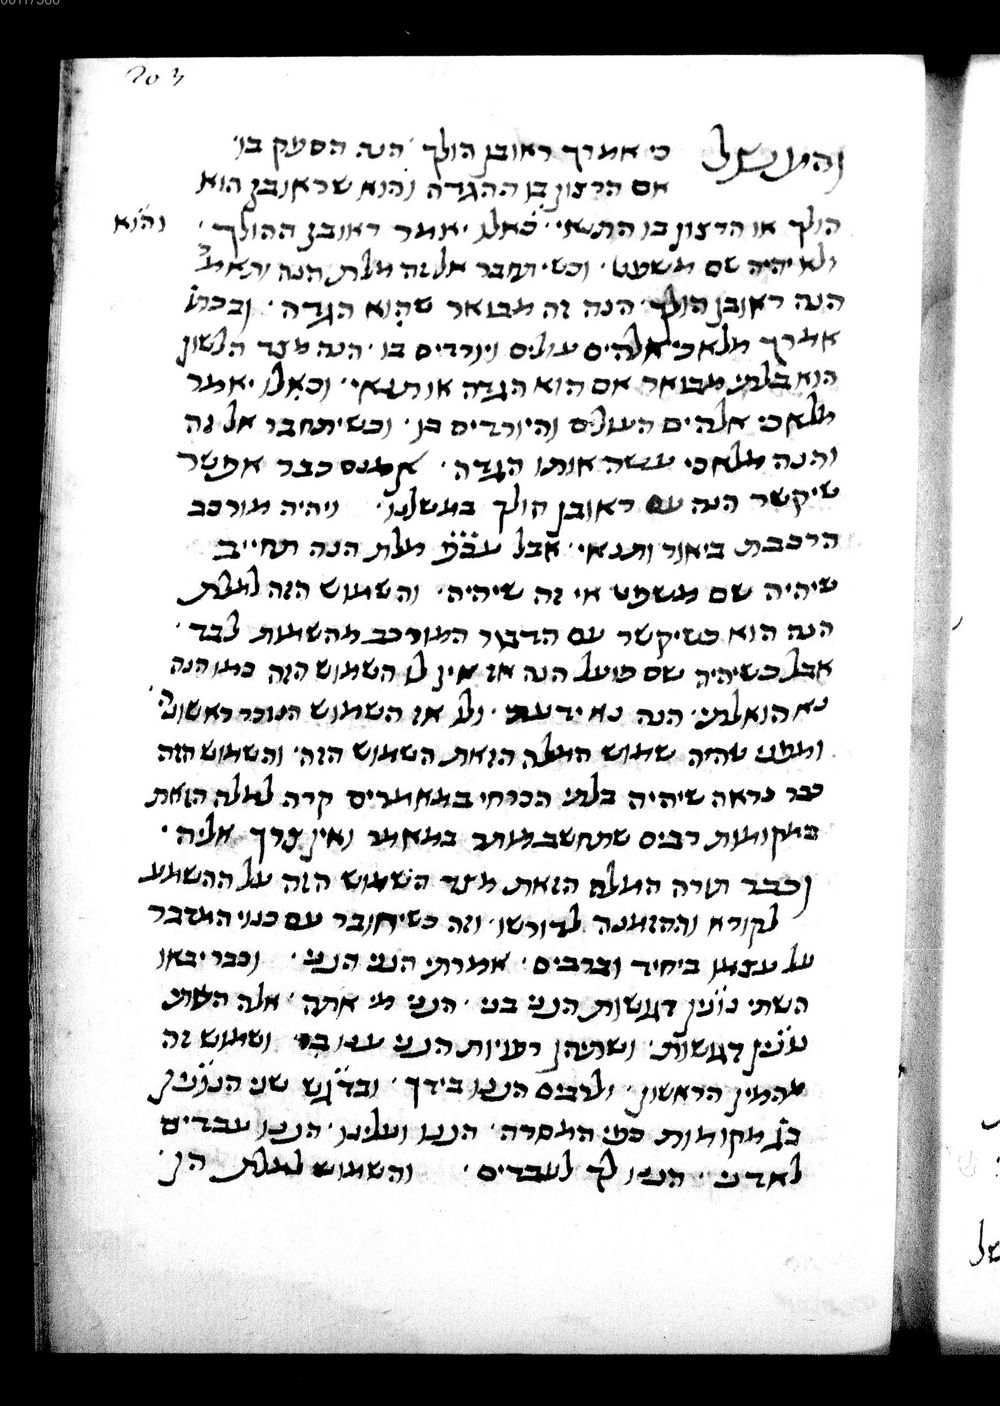 203
והמשל כי אמרך ראובן הולך הנה הספק בו
אם הרצון בו ההגדה והוא שראובן הוא
הולך או הרצון בו התנאי כאלו יאמר ראובן ההולך והוא
ולא יהיה שם משפט וכשיתחבר אל זה מלת הנה ותאמר
הנה ראובן הולך הנה זה מבואר שהוא הגדה ובכמו
אמרך מלאכי אלהים עולים ויורדים בו הנה מצד הלשון
הוא בלתי מבואר אם הוא הגדה או תנאי וכאלו יאמר
מלאכי אלהים העולים והיורדים בו וכשיתחבר אל זה
והנה מלאכי עשה אותו הגדה אמנם כבר אפשר
שיקשר הנה עם ראובן הולך במשלנו ויהיה מורכב
הרכבת ביאור ותנאי אבל מלת הנה תחייב
שיהיה שם משפט אי זה שיהיה והשמוש הזה למלת
הנה הוא כשיקשר עם הדבור המורכב מהשמות לבד
אבל כשיהיה שם פועל הנה אז אין לו השמוש הזה כמו הנה
נא הואלתי הנה נא ידעתי ולא אז השמוש הנזכר ראשונה
ומפני שהיה שמוש המלה הזאת השמוש הזה והשמוש הזה
כבר נראה שיהיה בלתי הכרחי במאמרים קרה למלה הזאת
במקומות רבים שתחשב מותר במאמר ואין צרך אליה
וכבר תורה המלה הזאת מצד השמוש הזה על ההשמע
לקורא וההזמנה לדורשו וזה כשיחובר עם כנוי המדבר
על עצמו ביחיד וברבים אמרתי הנני הנני וכבר יבאו
השתי נונין דגשות הנני בני הנני מי אתה אלה השתי
נונין דגשות ושתיהן רפויות הנני ענו בי ושמוש זה
מהמין הראשון ולרבים הננו בידך ובדגש שני הנונין
בג מקומות כפי המסרה הננו ועלינו הננו עבדים
לאדני הננו לך לעבדים והשמוש למלת הן